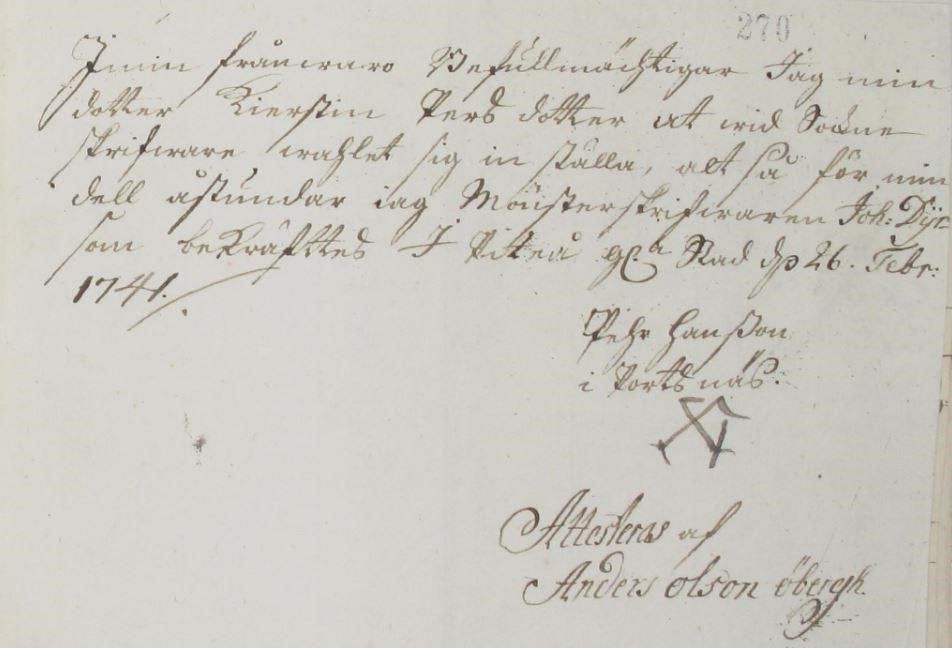 270
I min frånwaro Befullmächtigar Jag min
dotter Kierstin Pers dotter at wid Sockne
skrifware wahlet sig in ställa, alt så för min
dell åstundar iag Mönsterskrifwaren Joh:
som bekräfttes I Piteå Stad 26. Febr:
1741.
Pehr Hansson
i Portsnäs.
Attesteras af
Anders olson öbergh.